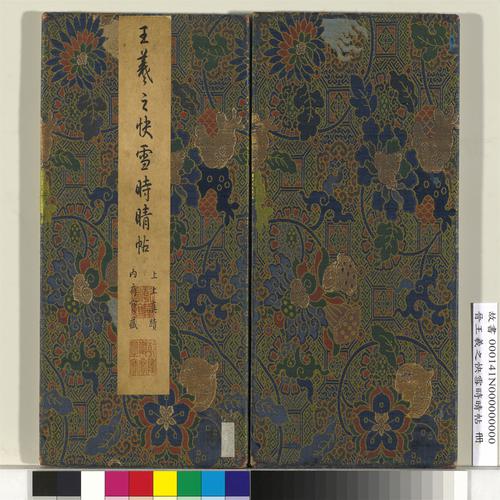 王羲之快雪時晴帖
上上真蹟
内府寶藏
故書 000141N000000000
晉王羲之快雪時晴帖 冊